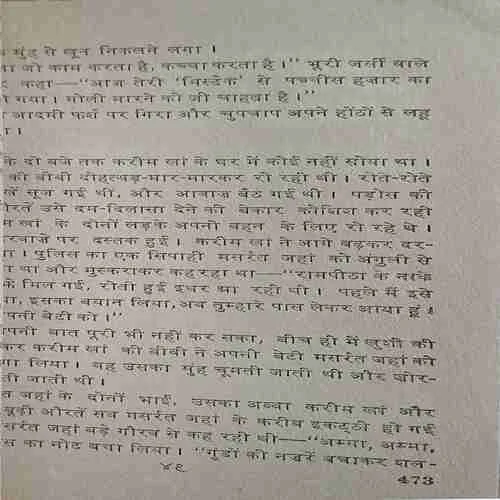 मुंह से खून निकलने लगा ।
जो काम करता है, कच्चा करता है ।” भूरी जर्सी वाले
कहा—“आज तेरी ‘मिस्टेक’ से पच्चीस हजार का
गया । गोली मारने को जी चाहता है ।”
आदमी फर्श पर गिरा और चुपचाप अपने होंठों से लहू
। 
के दो बजे तक करीम खां के घर में कोई नहीं सोया था ।
की बीवी दोहत्थड़-मार-मारकर रो रही थी । रोते-रोते
सूज गई थीं, और आवाज़ बैठ गई थी । पड़ोस की
उसे दम-दिलासा देने की बेकार कोशिश कर रही
खां के दोनों लड़के अपनी बहन के लिए रो रहे थे ।
पर दस्तक हुई । करीम खां ने आगे बढ़कर दर-
। पुलिस का एक सिपाही मसर्रत जहां को अंगुली से
था और मुस्कराकर कह रहा था—“रामपीठा के नाके
मिल गई, रोती हुई इधर आ रही थी । पहले मैं इसे
इसका बयान लिया, अब तुम्हारे पास लेकर आया हूं ।
बेटी को ।”
बात पूरी भी नहीं कर सका, बीच ही में खुशी की
करीम खां की बीवी ने अपनी बेटी मसर्रत जहां को
लिया । वह उसका मुंह चूमती जाती थी और ज़ोर-
जाती थी ।
जहां के दोनों भाई, उसका अब्बा करीम खां और
औरतें सब मसर्रत जहां के करीब इकट्ठी हो गईं
जहां बड़े गौरव से कह रही थी—“अम्मा, अम्मा,
का नोट बचा लिया । “गुंडों की नज़रें बचाकर शल-
४९
473